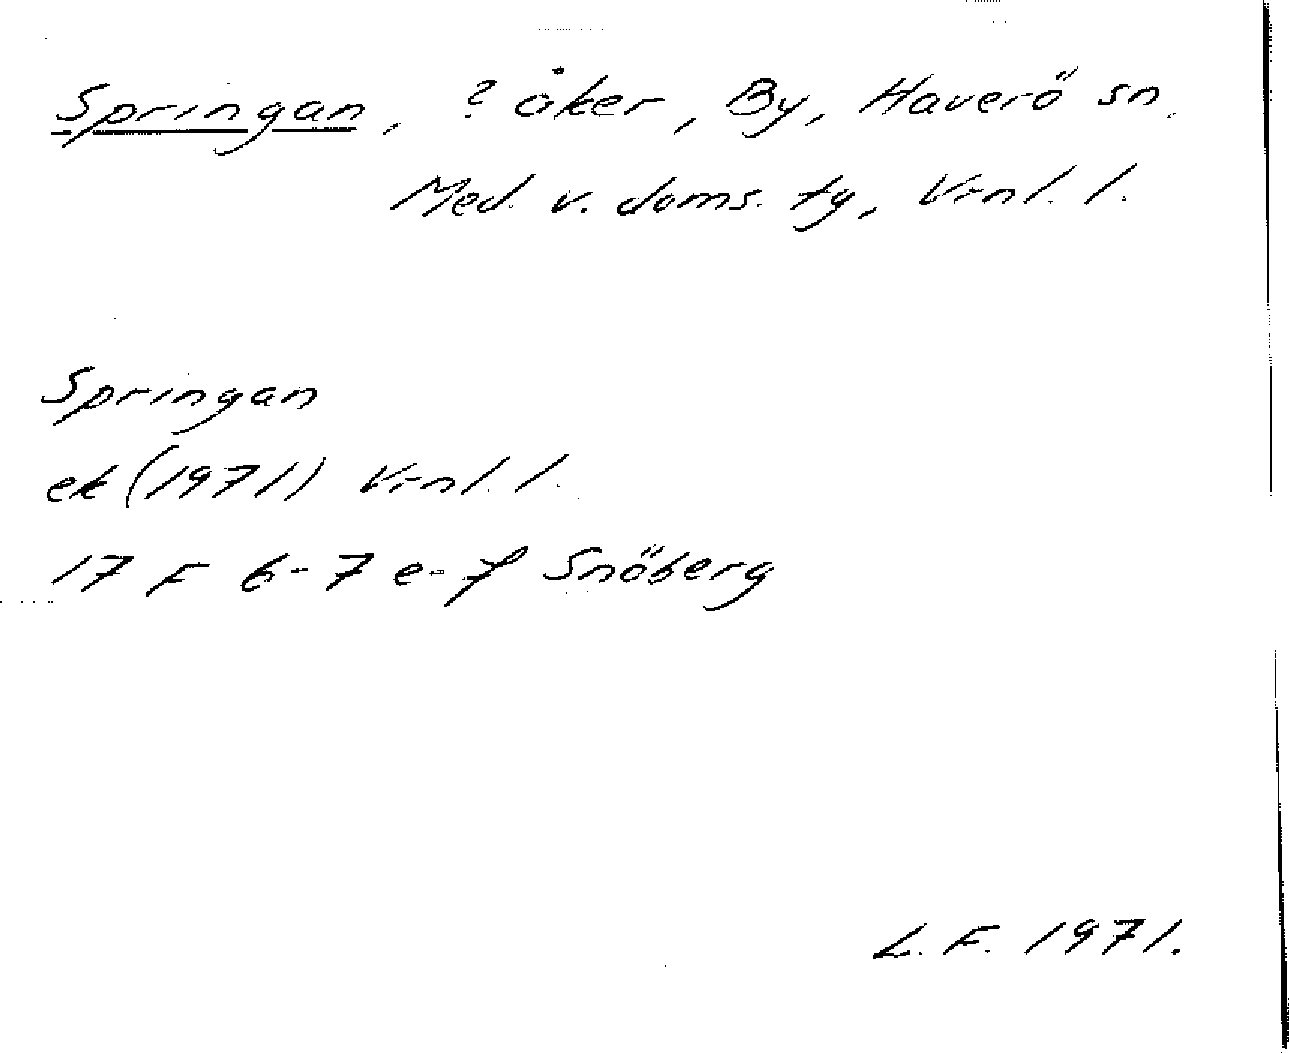 Springan, ? åker, By, Haverö sn.
Med. v. doms. tg, Vrnl. l.
Springan
ek (1971) Vrnl. l.
17 F 6-7 e-f Snöberg
L. F. 1971.